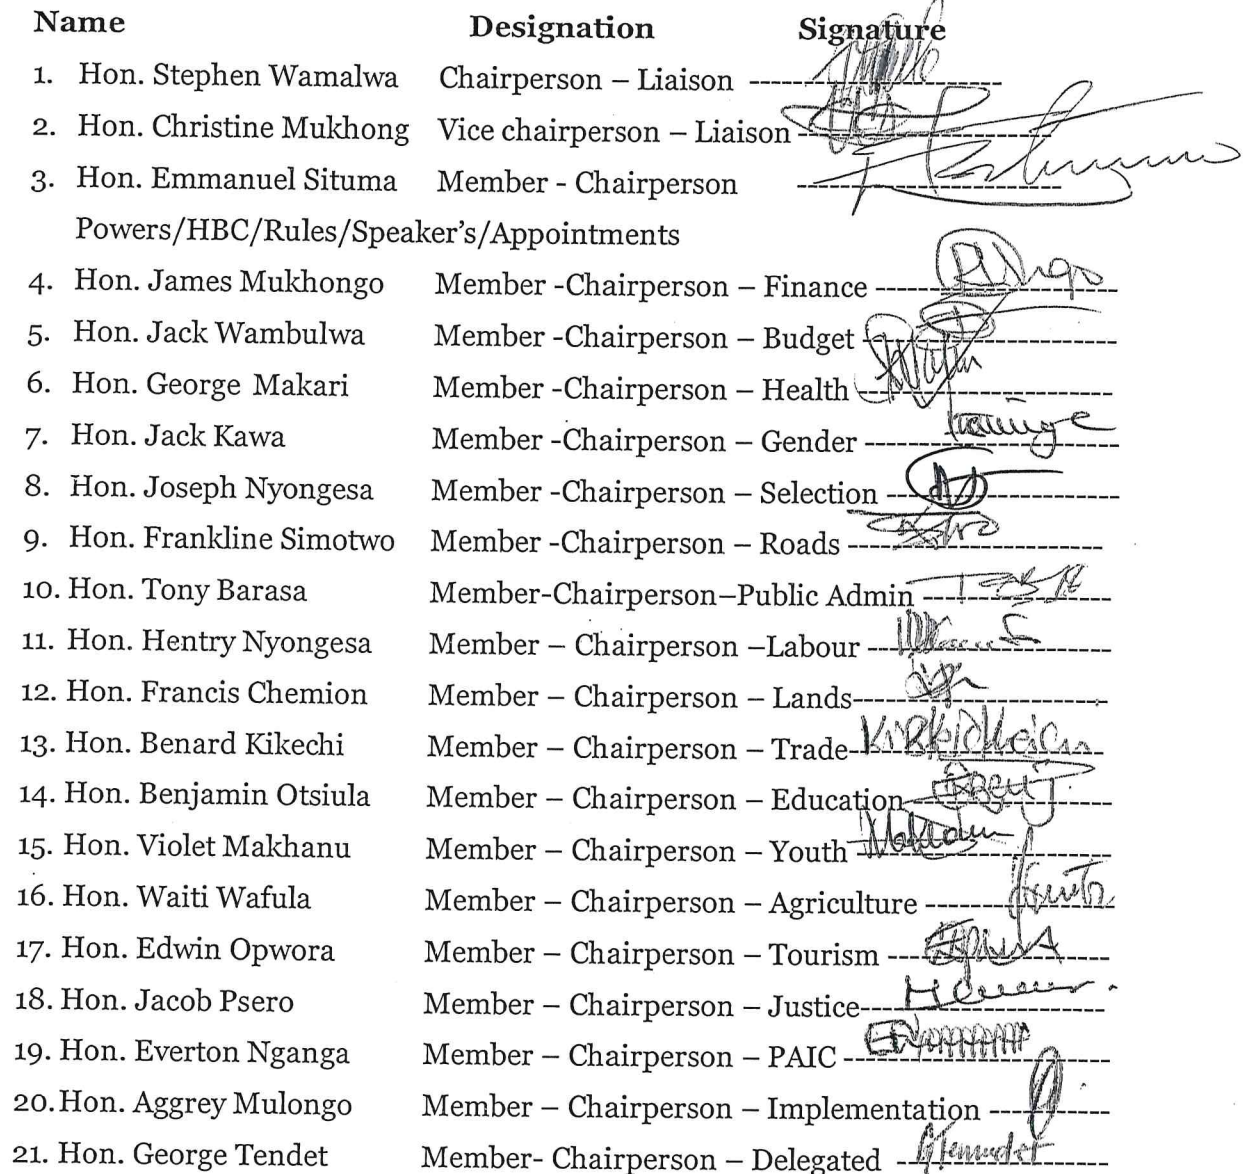 Name Designation Signature
1. Hon. Stephen Wamalwa Chairperson – Liaison
2. Hon. Christine Mukhong Vice chairperson – Liaison
3. Hon. Emmanuel Situma Member - Chairperson
Powers/HBC/Rules/Speaker's/Appointments
4. Hon. James Mukhongo Member -Chairperson – Finance
5. Hon. Jack Wambulwa Member -Chairperson – Budget
6. Hon. George Makari Member -Chairperson – Health
7. Hon. Jack Kawa Member -Chairperson – Gender
8. Hon. Joseph Nyongesa Member -Chairperson – Selection
9. Hon. Frankline Simotwo Member -Chairperson – Roads
10. Hon. Tony Barasa Member-Chairperson–Public Admin
11. Hon. Hentry Nyongesa Member – Chairperson –Labour
12. Hon. Francis Chemion Member – Chairperson – Lands
13. Hon. Benard Kikechi Member – Chairperson – Trade
14. Hon. Benjamin Otsiula Member – Chairperson – Education
15. Hon. Violet Makhanu Member – Chairperson – Youth
16. Hon. Waiti Wafula Member – Chairperson – Agriculture
17. Hon. Edwin Opwora Member – Chairperson – Tourism
18. Hon. Jacob Psero Member – Chairperson – Justice
19. Hon. Everton Nganga Member – Chairperson – PAIC
20. Hon. Aggrey Mulongo Member – Chairperson – Implementation
21. Hon. George Tendet Member- Chairperson – Delegated